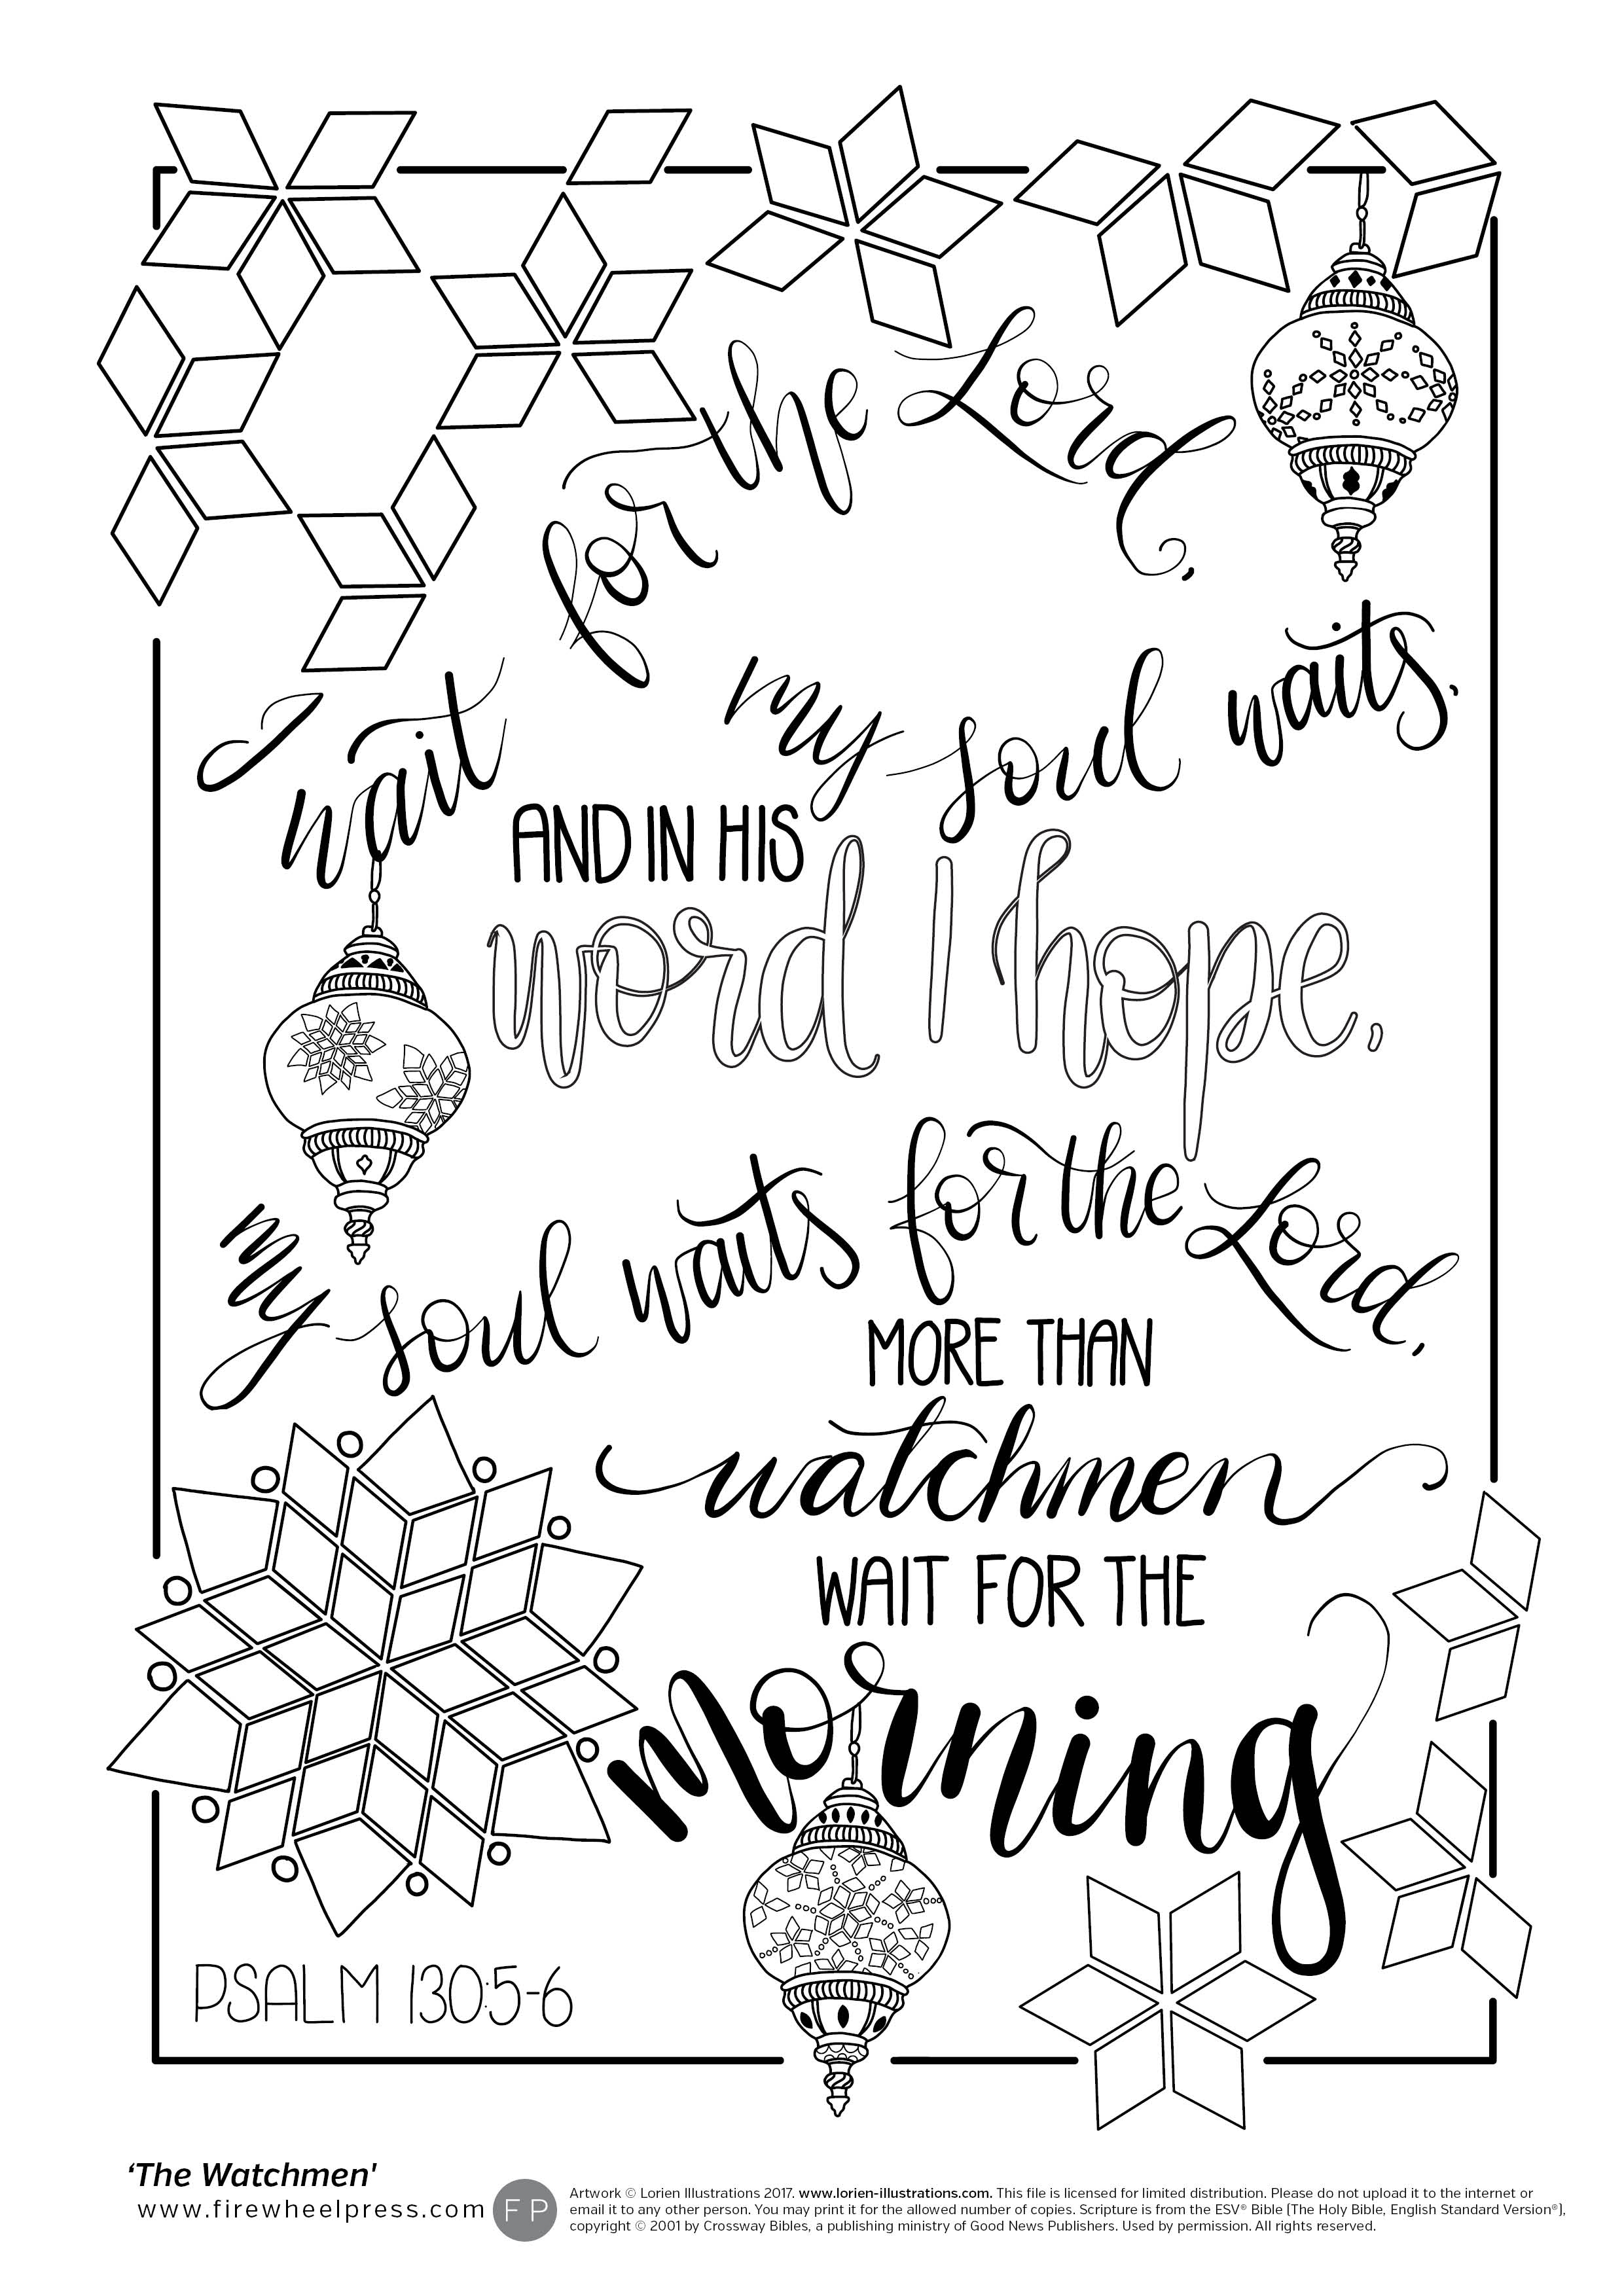 I wait for the Lord,
my soul waits,
AND IN HIS
word I hope,
my soul waits for the Lord,
MORE THAN
watchmen
WAIT FOR THE
morning
PSALM 130:5-6
‘The Watchmen'
www.firewheelpress.com
FP
Artwork © Lorien Illustrations 2017. www.lorien-illustrations.com. This file is licensed for limited distribution. Please do not upload it to the internet or
email it to any other person. You may print it for the allowed number of copies. Scripture is from the ESV® Bible (The Holy Bible, English Standard Version®),
copyright © 2001 by Crossway Bibles, a publishing ministry of Good News Publishers. Used by permission. All rights reserved.